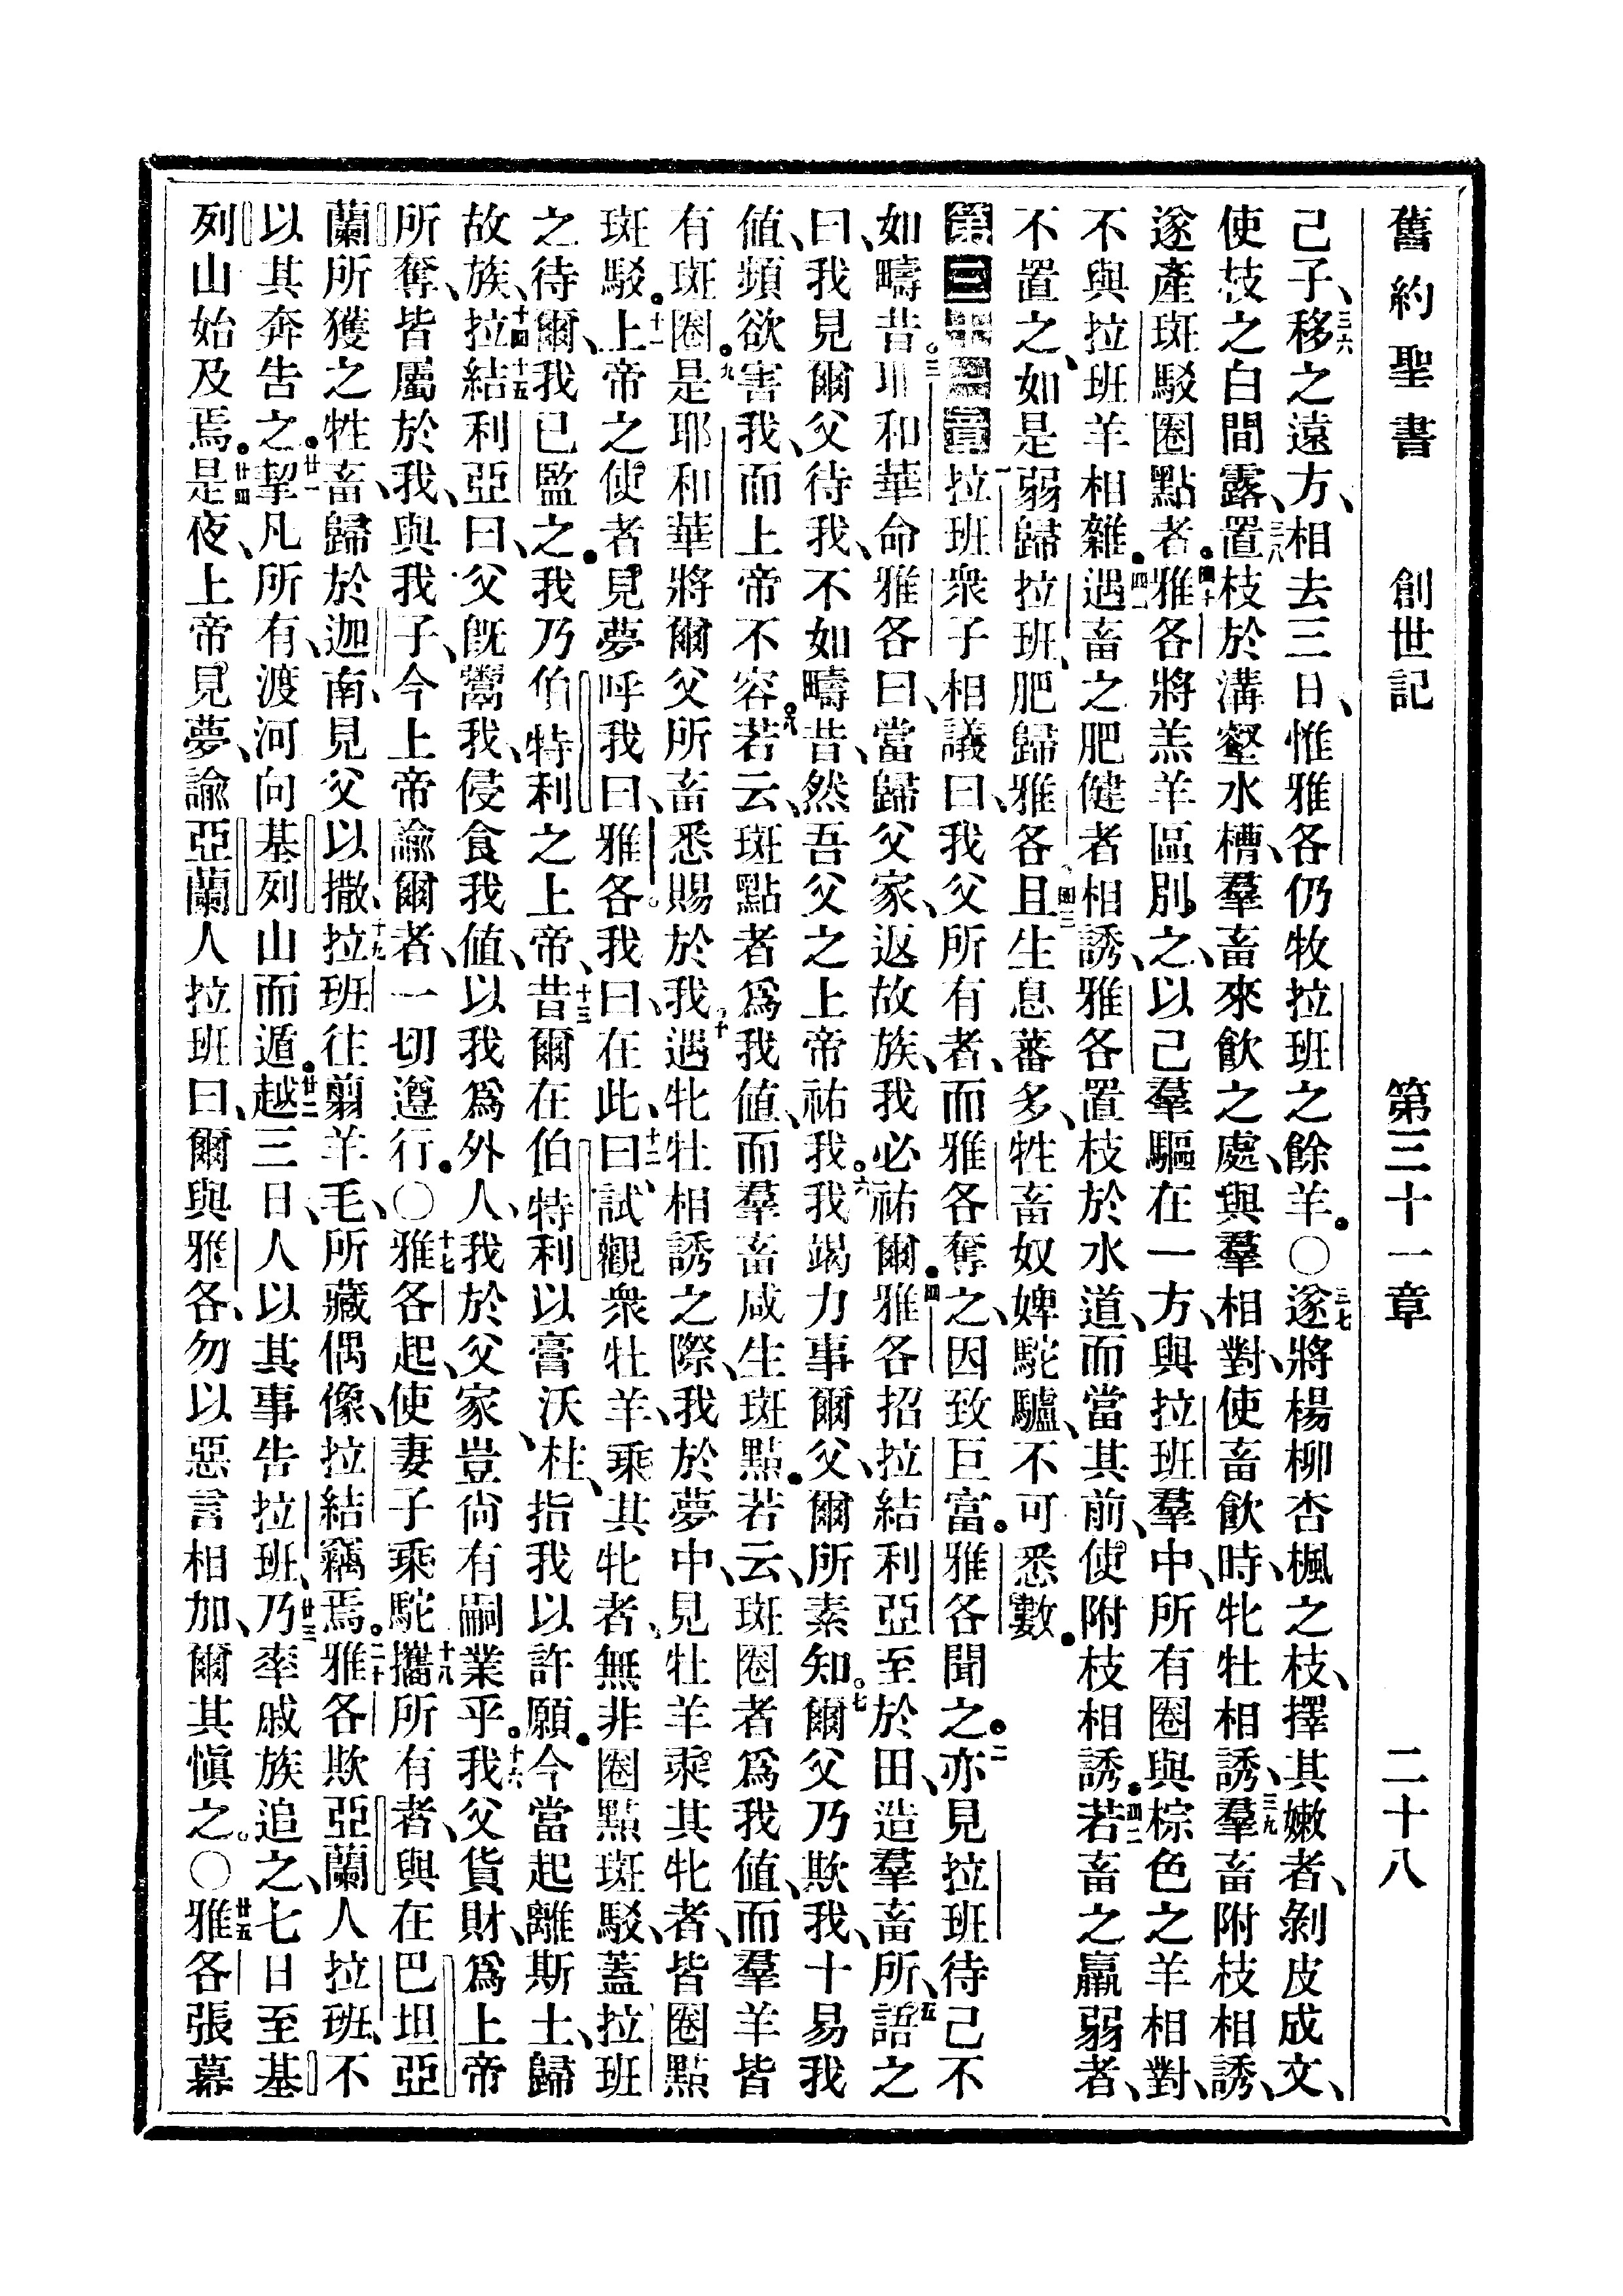 舊約聖書 創世記 第三十一章 二十八
己子、三六移之遠方、相去三日、惟雅各仍牧拉班之餘羊。〇三七遂將楊柳杏楓之枝、擇其嫩者、剝皮成文、
使枝之白間露、三八置枝於溝壑水槽、羣畜來飲之處、與羣相對、使畜飲時、牝牡相誘、三九羣畜附枝相誘、
遂產斑駁圈點者。四十雅各將羔羊區別之、以己羣驅在一方、與拉班羣中、所有圈與棕色之羊相對、
不與拉班羊相雜。四一遇畜之肥健者相誘、雅各置枝於水道、而當其前、使附枝相誘。四二若畜之羸弱者、
不置之、如是弱歸拉班、肥歸雅各、四三且生息蕃多、牲畜奴婢駝驢、不可悉數。
第三十一章一拉班衆子相議曰、我父所有者、而雅各奪之、因致巨富。雅各聞之。二亦見拉班待己不
如疇昔。三耶和華命雅各曰、當歸父家、返故族、我必祐爾。四雅各招拉結利亞至於田、造羣畜所、五語之
曰、我見爾父待我、不如疇昔、然吾父之上帝祐我。六我竭力事爾父、爾所素知。七爾父乃欺我、十易我
値、頻欲害我、而上帝不容。八若云、斑點者爲我値、而羣畜咸生斑點。若云、斑圈者爲我値、而羣羊皆
有斑圈。九是耶和華將爾父所畜、悉賜於我。十遇牝牡相誘之際、我於夢中、見牡羊乘其牝者、皆圈點
斑駁。十一上帝之使者、見夢呼我曰、雅各。我曰、在此、十二曰、試觀衆牡羊、乘其牝者、無非圈點斑駁、蓋拉班
之待爾、我已監之。十三我乃伯特利之上帝、昔爾在伯特利以膏沃柱、指我以許願。今當起離斯土、歸
故族、十四拉結十五利亞曰、父旣鬻我、侵食我値、以我爲外人、我於父家、豈尙有嗣業乎。十六我父貨財、爲上帝
所奪、皆屬於我、與我子、今上帝諭爾者、一切遵行。〇十七雅各起、使妻子乘駝、十八攜所有者、與在巴坦亞
蘭所獲之牲畜、歸於迦南、見父以撒、十九拉班往翦羊毛、所藏偶像、拉結竊焉。二十雅各欺亞蘭人拉班、不
以其奔告之。廿一挈凡所有、渡河向基列山而遁。廿二越三日、人以其事告拉班、廿三乃率戚族追之、七日至基
列山始及焉。廿四是夜、上帝見夢、諭亞蘭人拉班曰、爾與雅各、勿以惡言相加、爾其愼之。〇廿五雅各張幕